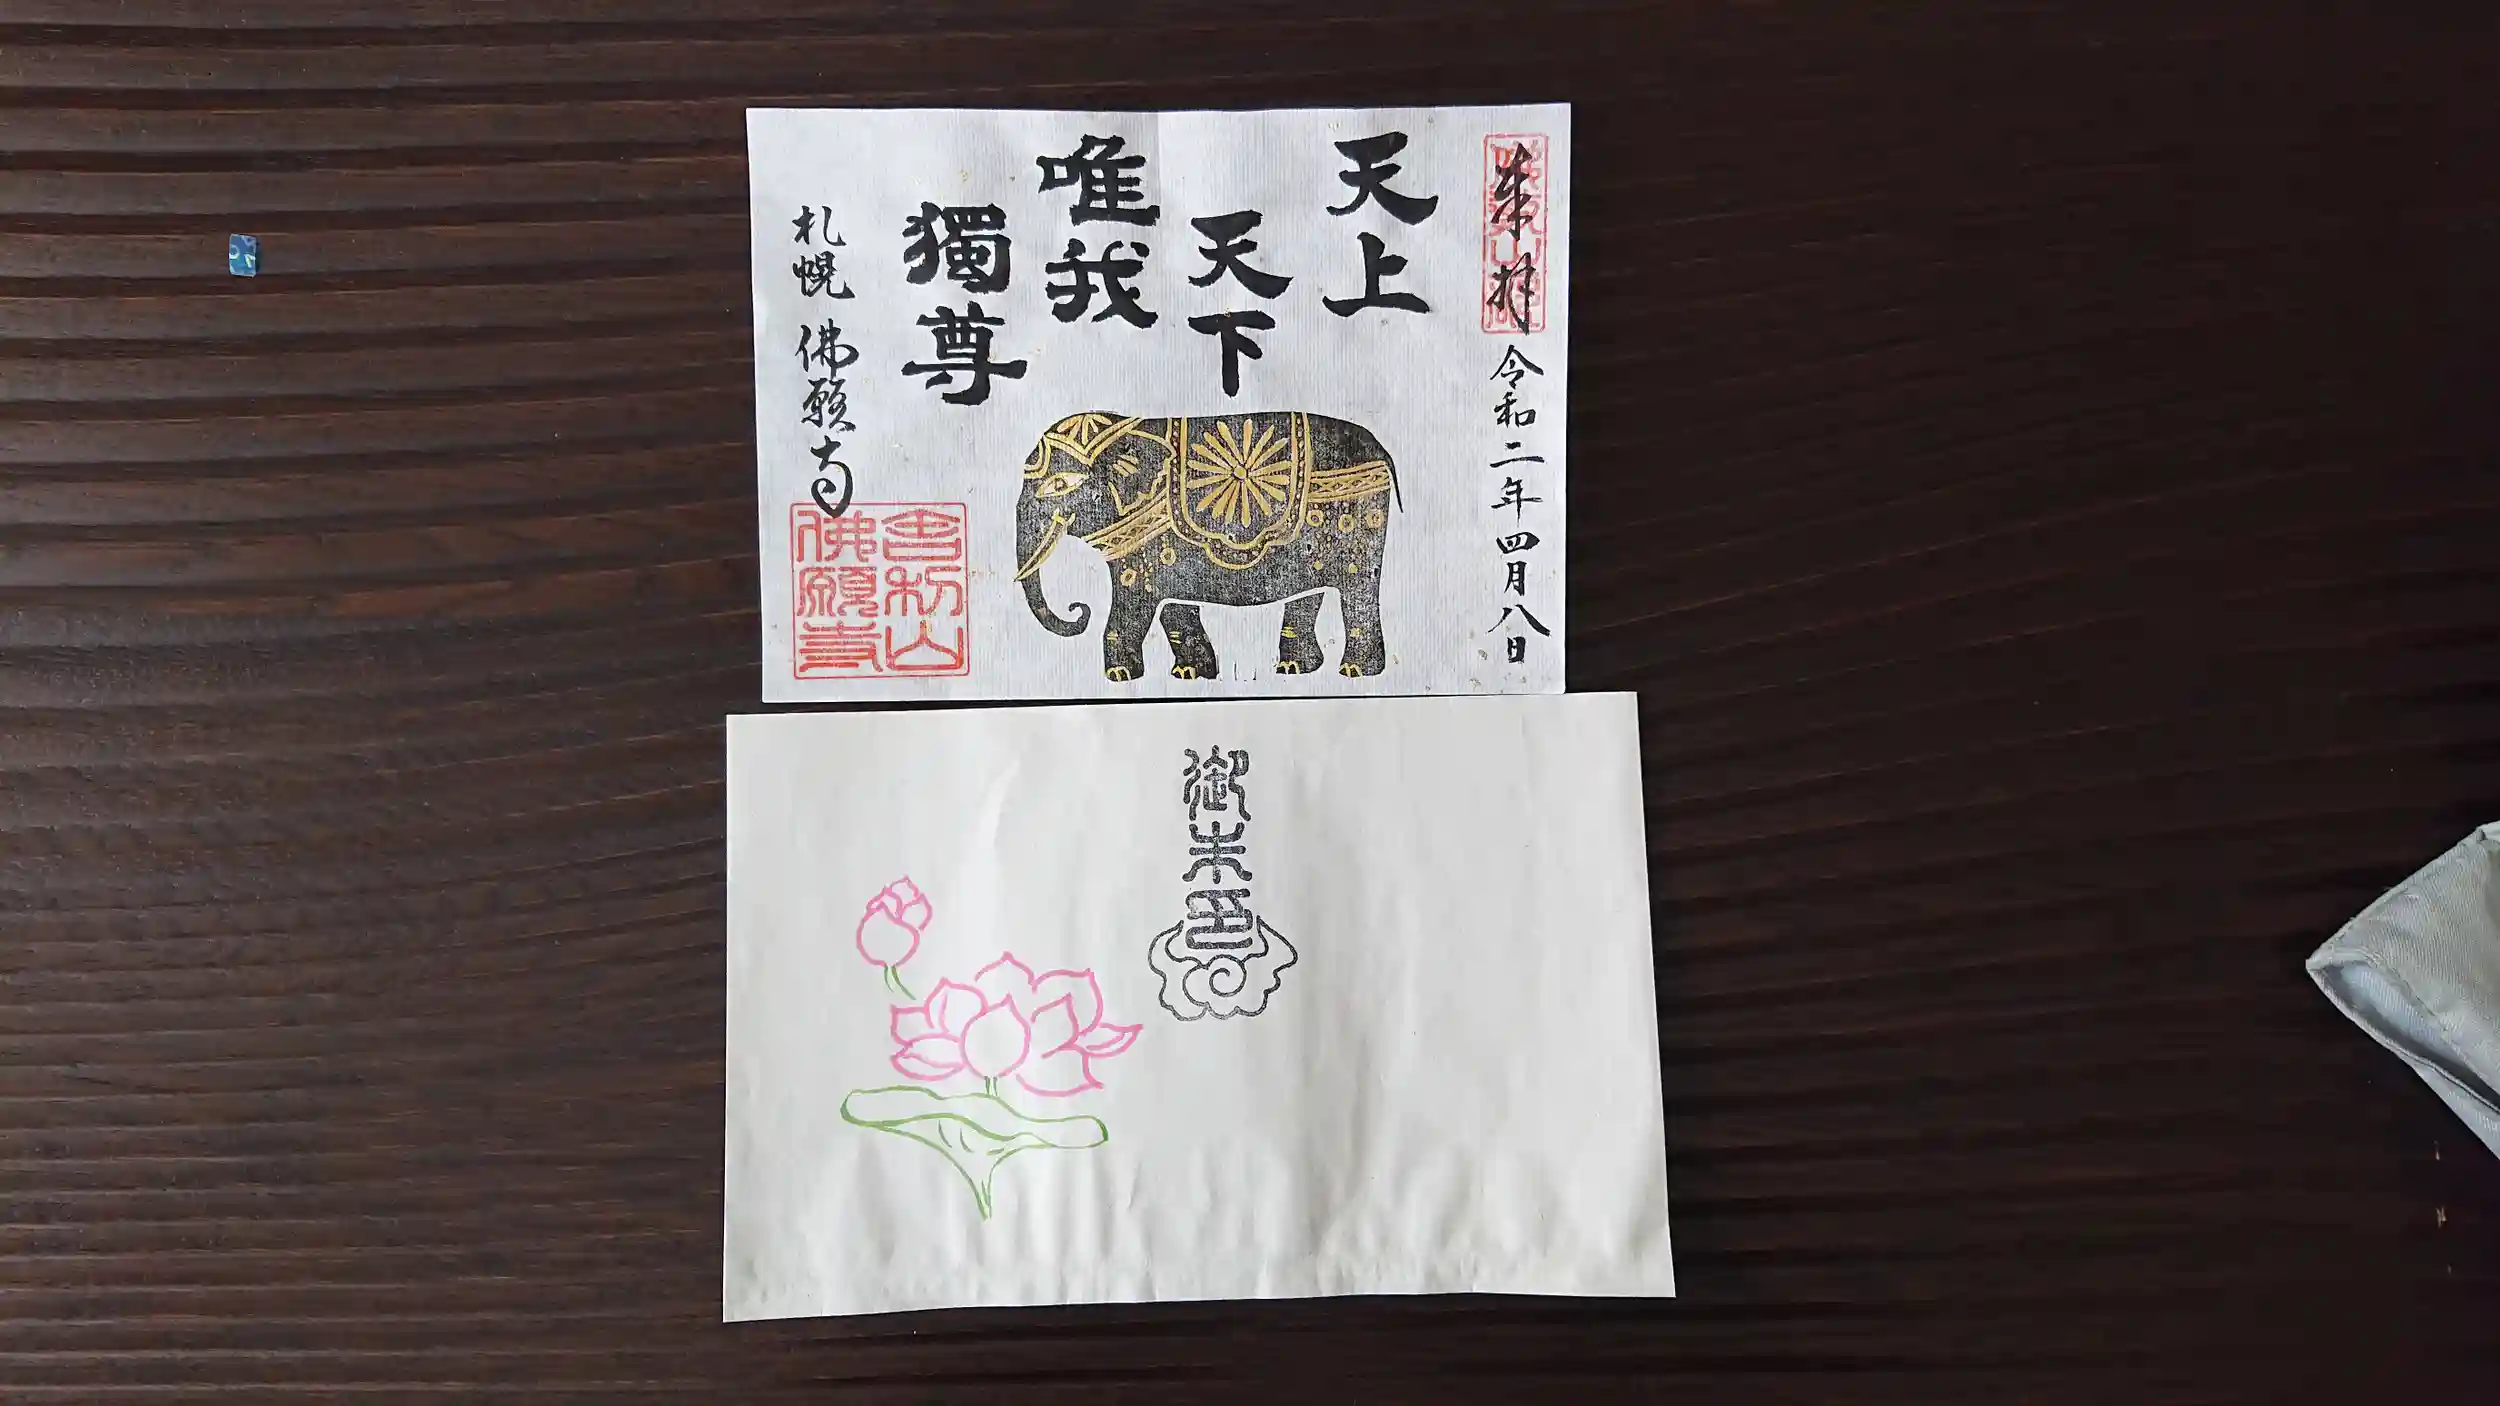 奉拝 令和二年四月八日
天上
天下
唯我
獨尊
札幌 佛願寺
舎利山
佛願寺
御朱印